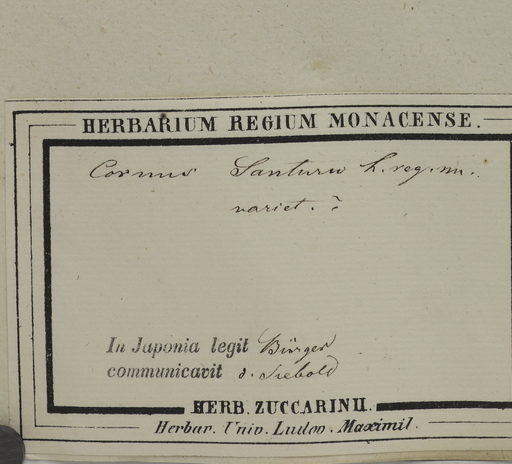 HERBARIUM REGIUM MONACENSE.
Cornus h. reg. m.
variet. ?
In Japonia legit Bürger
communicavit d. Siebold
HERB. ZUCCARINII.
Herbar. Univ. Ludov. Maximil.